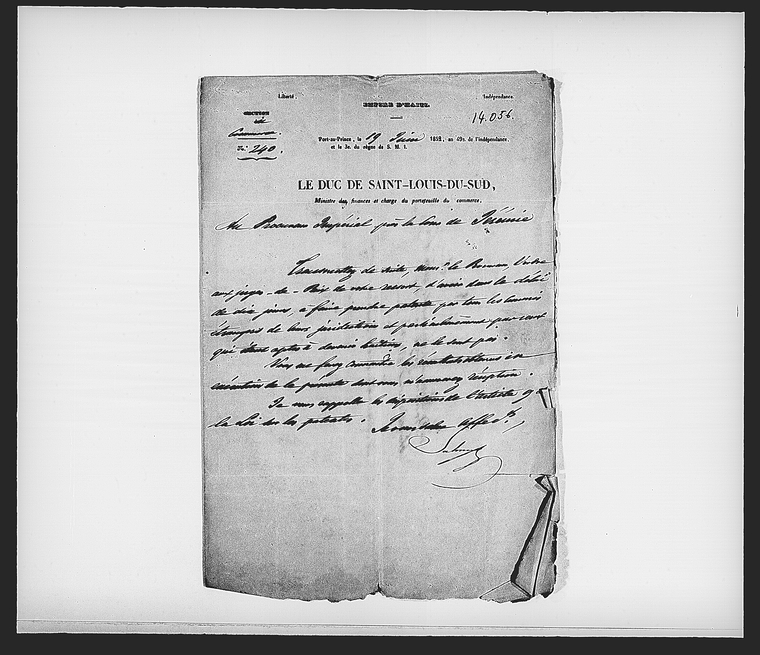 Liberté,
EMPIRE D'HAITI.
Indépendance.
14.056.
SECTION
de
Commerce.
No. 240.
Port-au-Prince, le 19 Juin 1852, an 49e. de l'indépendance,
et le 3e. du règne de S. M. I.
LE DUC DE SAINT-LOUIS-DU-SUD,
Ministre des finances et chargé du portefeuille du commerce,
Au Procureur Impérial près la Cour de Jérémie
Transmettez de suite, Mons. le Procureur, l'ordre
aux juges-de-Paix de votre ressort, d'avoir dans le délai
de dix jours, a faire prendre patente par tous les
étrangers de leurs juridictions et particulièrement par ceux
qui étant aptes à devenir haïtiens, ne le sont pas.
Vous me ferez connaître les résultats obtenus en
exécution de la présente dont vous m'accuserez réception.
Je vous rappelle les dispositions de l'article
la Loi sur les patentes.